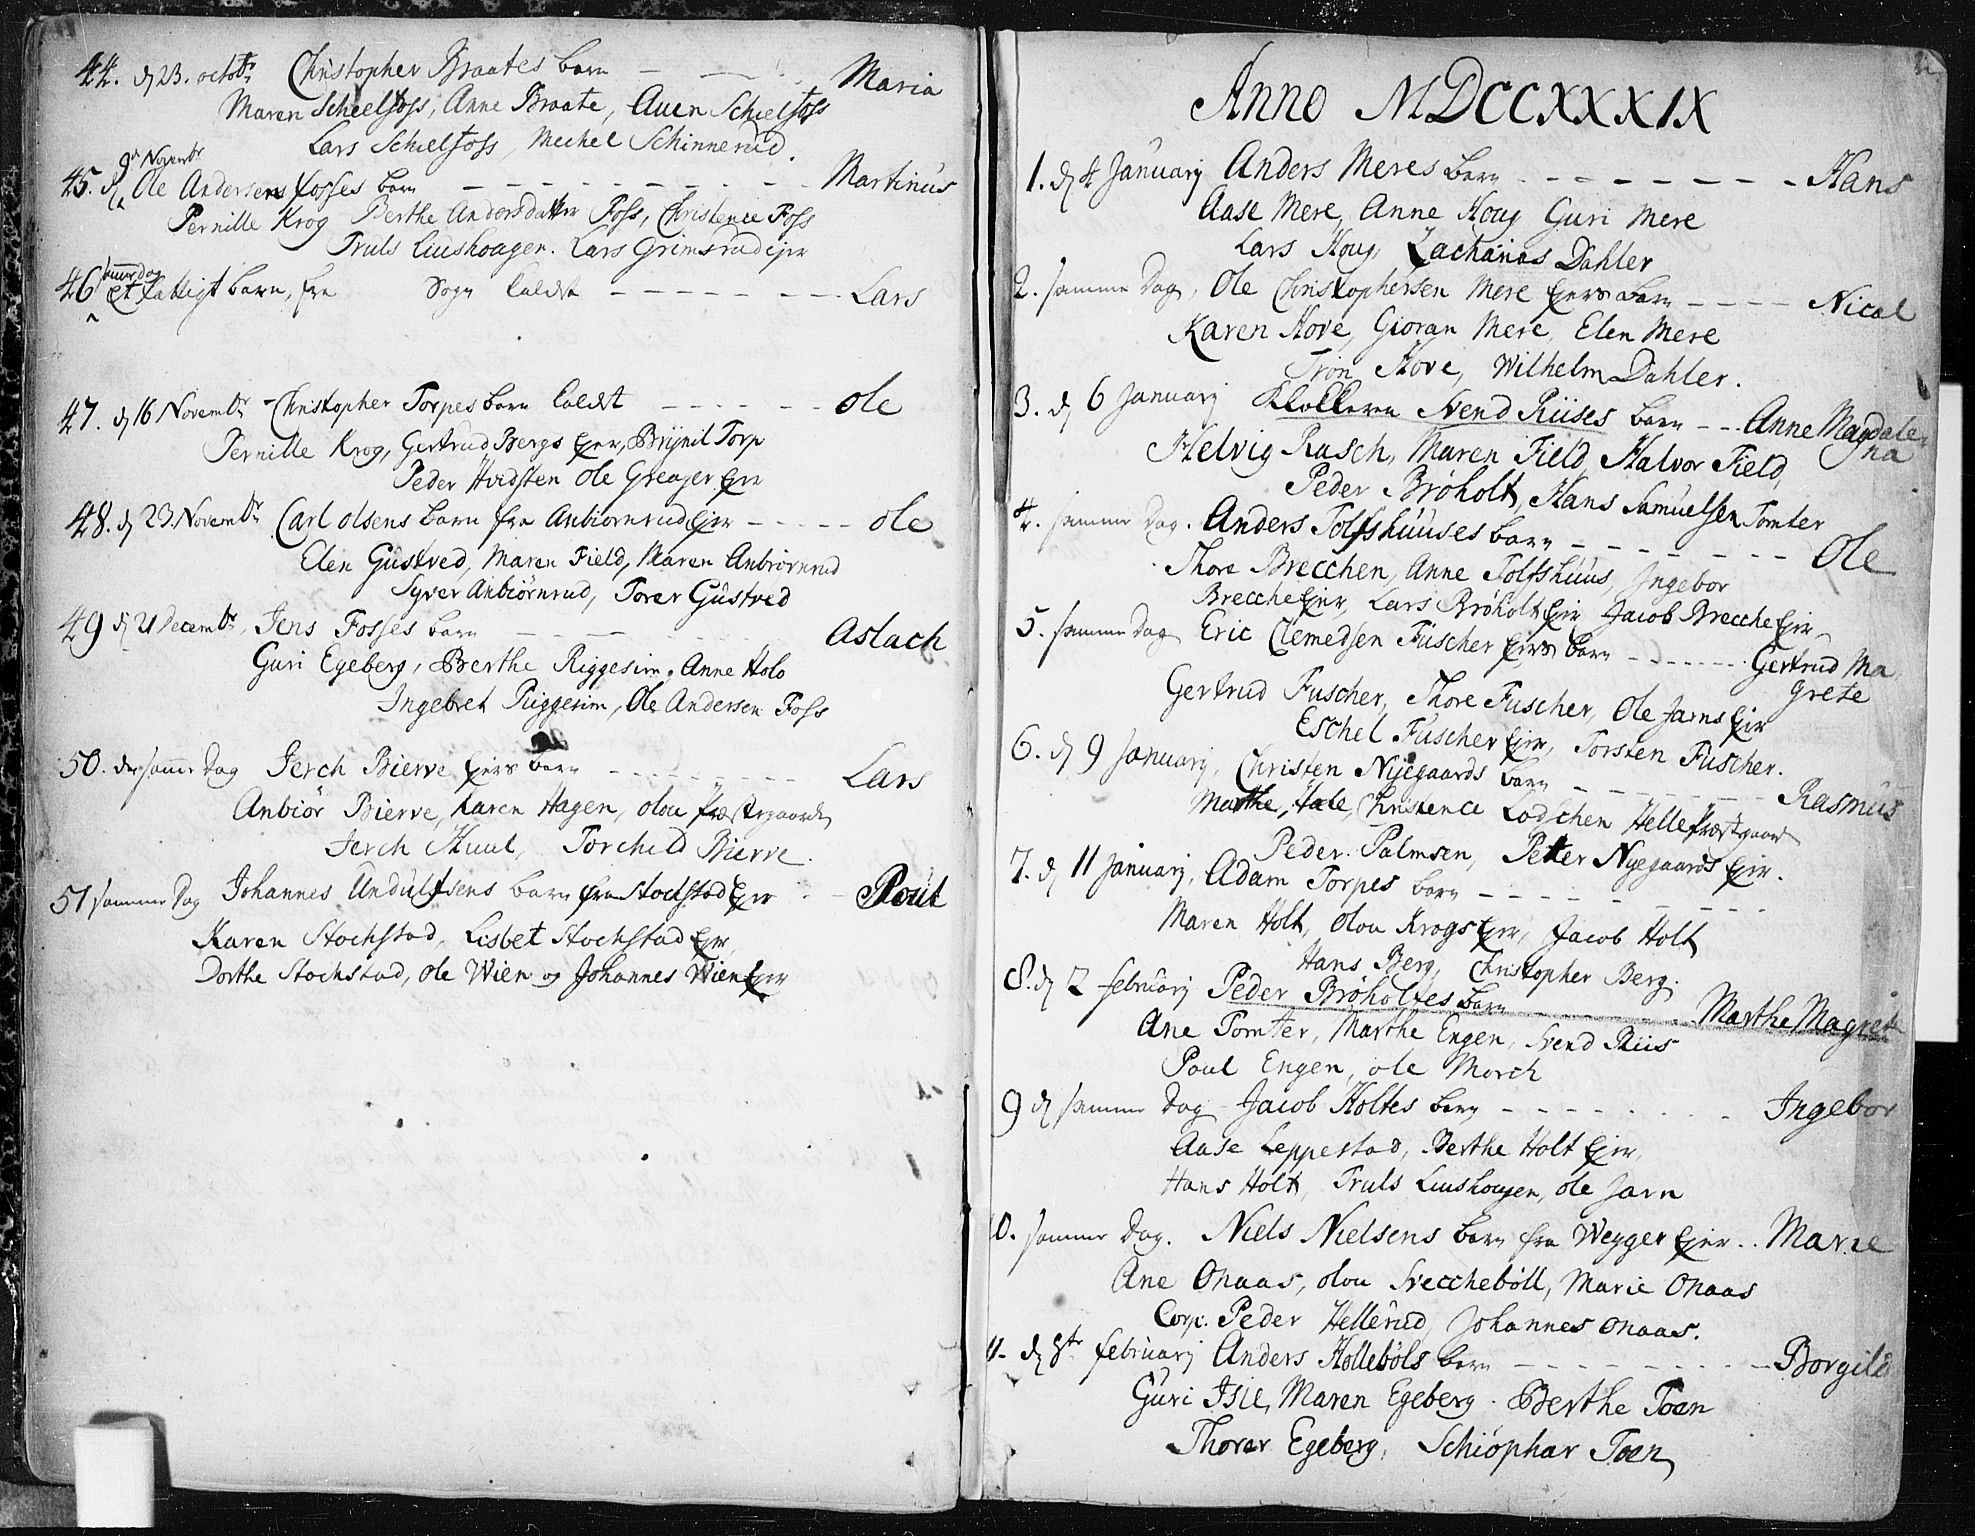 44. d 23. octobr Christopher Braates barn - - - Maria
Maren Schielfoss, Anne Braate, Auen Schielfoss
Lars Schielfoss, Mechel Schinnerud.
9de Novembr
45. d Ole Andersens Fosses barn - - - - - - - - - Martinus
Pernille Krog Berthe Andersdatter Foss, Christence Foss
Truls Luushougen. Lars Grimsrudejer
samme dag
46 Et fattigt barn, fra Sogn kaldet - - - - - - - Lars
47. d 16 Novembr Christopher Torpes barn kaldet - - - - - - Ole
Pernille Krog, Gertrud Bergs Ejer, Brynil Torp
Peder Hvidsten Ole Greager Ejer
48. d 23. Novembr Carl Olsens barn fra Anbiornrud Ejer - - - - - Ole
Elen Gustved, Maren Field, Maren Anbiørnrud
Syver Anbiørnrud, Torer Gustved
49 d 21 Decembr, Jens Fosses barn - - - - - Aslach
Guri Egeberg, Berthe Riggesim, Anne Holo
Ingebret Riggesim, Ole Andersen Foss
50. den samme Dag Jerch Bierve Ejers barn - - - - - - - - Lars
Anbiør Bierve, Karen Hagen, Olou Præstegaarden
Jerch Huul, Torchild Bierve.
51 samme Dag Johannes Undulfsens barn fra Stochstad Ejer - - Poul
Karen Stochstad, Lisbet Stochstad Ejer,
Dorthe Stochstad, Ole Wien og Johannes Wien Ejer
Anno MDCCXXXIX
1. d 4 Januarij Anders Meres barn - - - - - - - - Hans
Aase Mere, Anne Houg Guri Mere
Lars Houg, Zacharias Dahler
2. samme Dag, Ole Christophersen Mere Ejers barn - - - - Nicol
Karen Hove, Gioran Mere, Elen Mere
Tron Hove, Wilhelm Dahler.
3. d 6 Januarij Klokkeren Svend Riises barn - - Anne Magdale
na
Helvig Rasch, Maren Field, Halvor Field,
Peder Brøholt, Hans Samuelsen Tomter
4. samme Dag. Anders Tolfshuuses barn - - - - - - - Ole
Thore Brecchen, Anne Tolfshuus, Ingebor
Brecche Ejer, Lars Brøholt Ejer Jacob Brecche Ejer
5. samme Dag Eric Clemedsen Fuscher Ejers barn - - - - - - Gertrud Ma
grete
Gertrud Fuscher, Thore Fuscher, Ole Jarns Ejer
Eschel Fuscher Ejer, Torsten Fuscher.
6. d 9 Januarij, Christen Nyegaards barn - - - - - - - Rasmus
Marthe, Christence Lodschen Helle Præstgaard
Peder Palmsen, Petter Nyegaards Ejer.
7. d 11 Januarij, Adam Torpes barn - - - - - - - - -
Maren Holt, Olou Krogs Ejer, Jacob Holt
Hans Berg, Christopher Berg.
8. d 2 februarij Peder Brøholtes barn - - - - - - - Marthe Magret
Ane Tomter, Marthe Engen, Svend Riis
Poul Engen, Ole Morch
9 d samme Dag Jacob Holtes barn - - - - - - - - Ingebor
Aase Leppestad, Berthe Holt Ejer,
Hans Holt, Truls Luushougen, Ole Jarn
10. samme Dag. Niels Nielsens barn fra Wegger Ejer . . Marie
Ane Onaas, Olou Svecchebøll, Marie Onaas
Corp. Peder Hellerud, Johannes Onaas.
11. d 8te februarij Anders Hollebøls barn - - - - - - - - - Borgild
Guri Isie, Maren Egeberg. Berthe Toen
Thorer Egeberg, Schiophar Toen